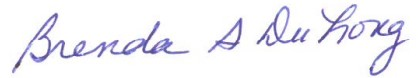 Brenda A DuLong